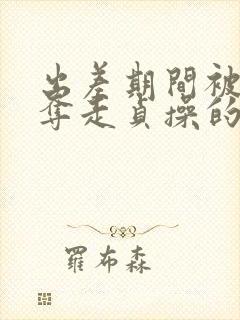 出差期間被
奪走貞操的
羅布森